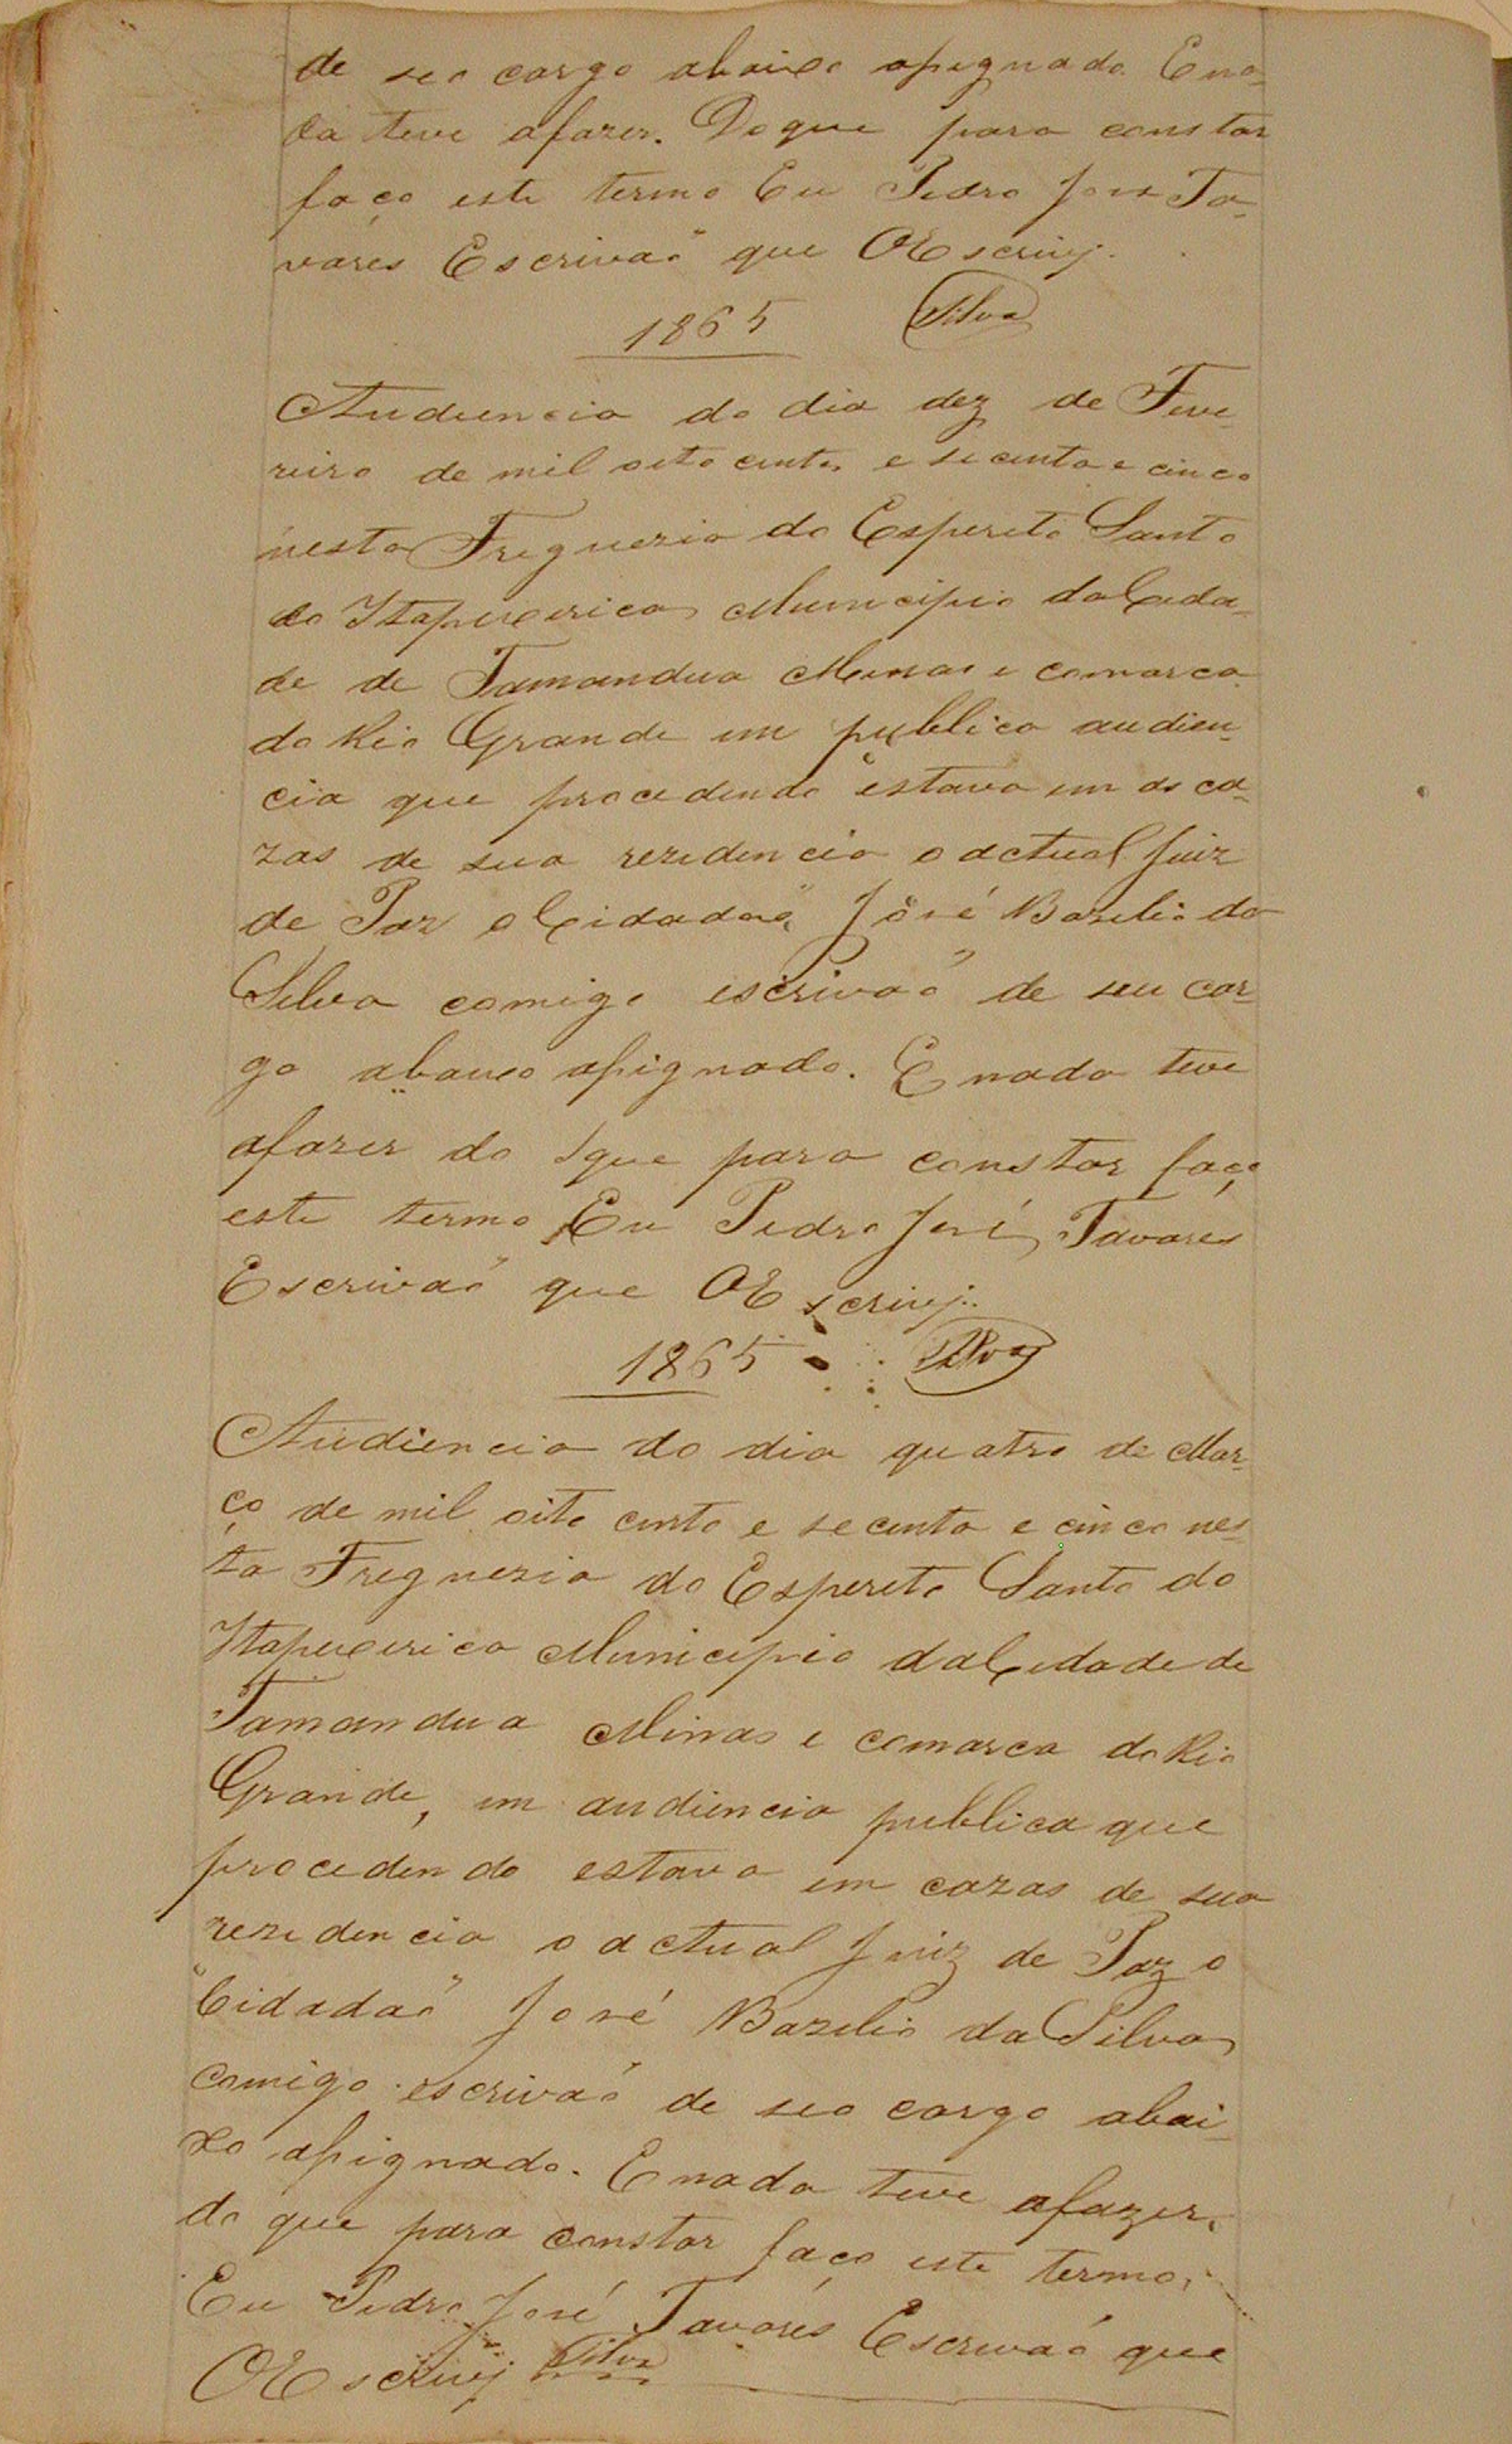 de seo cargo abaixo assignado. E na-
da teve afazer. Do que para constar
faço este termo Eu Pedro José Ta-
vares Escrivaõ que OEscrivj.
1865 Silva
Audiencia do dia dez de Feve-
reiro de mil oito centos e secenta e cinco
nesta Freguezia do Espereto Santo
do Itapecerica Municipio da Cida-
de de Tamandua Minas e comarca
do Rio Grande em publica audien-
cia que procedendo estava em as ca-
zas de sua rezidencia o actual Juiz
de Paz o Cidadaõ José Bazilio da
Silva comigo escrivaõ de seu car-
go abaixo assignado. E nada teve
afazer do que para constar faço
este termo Eu Pedro José Tavares
Escrivaõ que OEscrivj.
1865 Silva
Audiencia do dia quatro de Mar-
ço de mil oito cento e secenta e cinco nes-
ta Freguezia do Espereto Santo do
Itapecerica Municipio da Cidade de
Tamandua Minas e comarca do Rio
Grande, em audiencia publica que
procedendo estava em cazas de sua
rezidencia o actual Juiz de Paz o
Cidadaõ José Bazilio da Silva
comigo escrivaõ de seo cargo abai-
xo assignado. E nada teve afazer.
do que para constar faço este termo,
Eu Pedro José Tavares Escrivaõ que
OEscrivj Silva